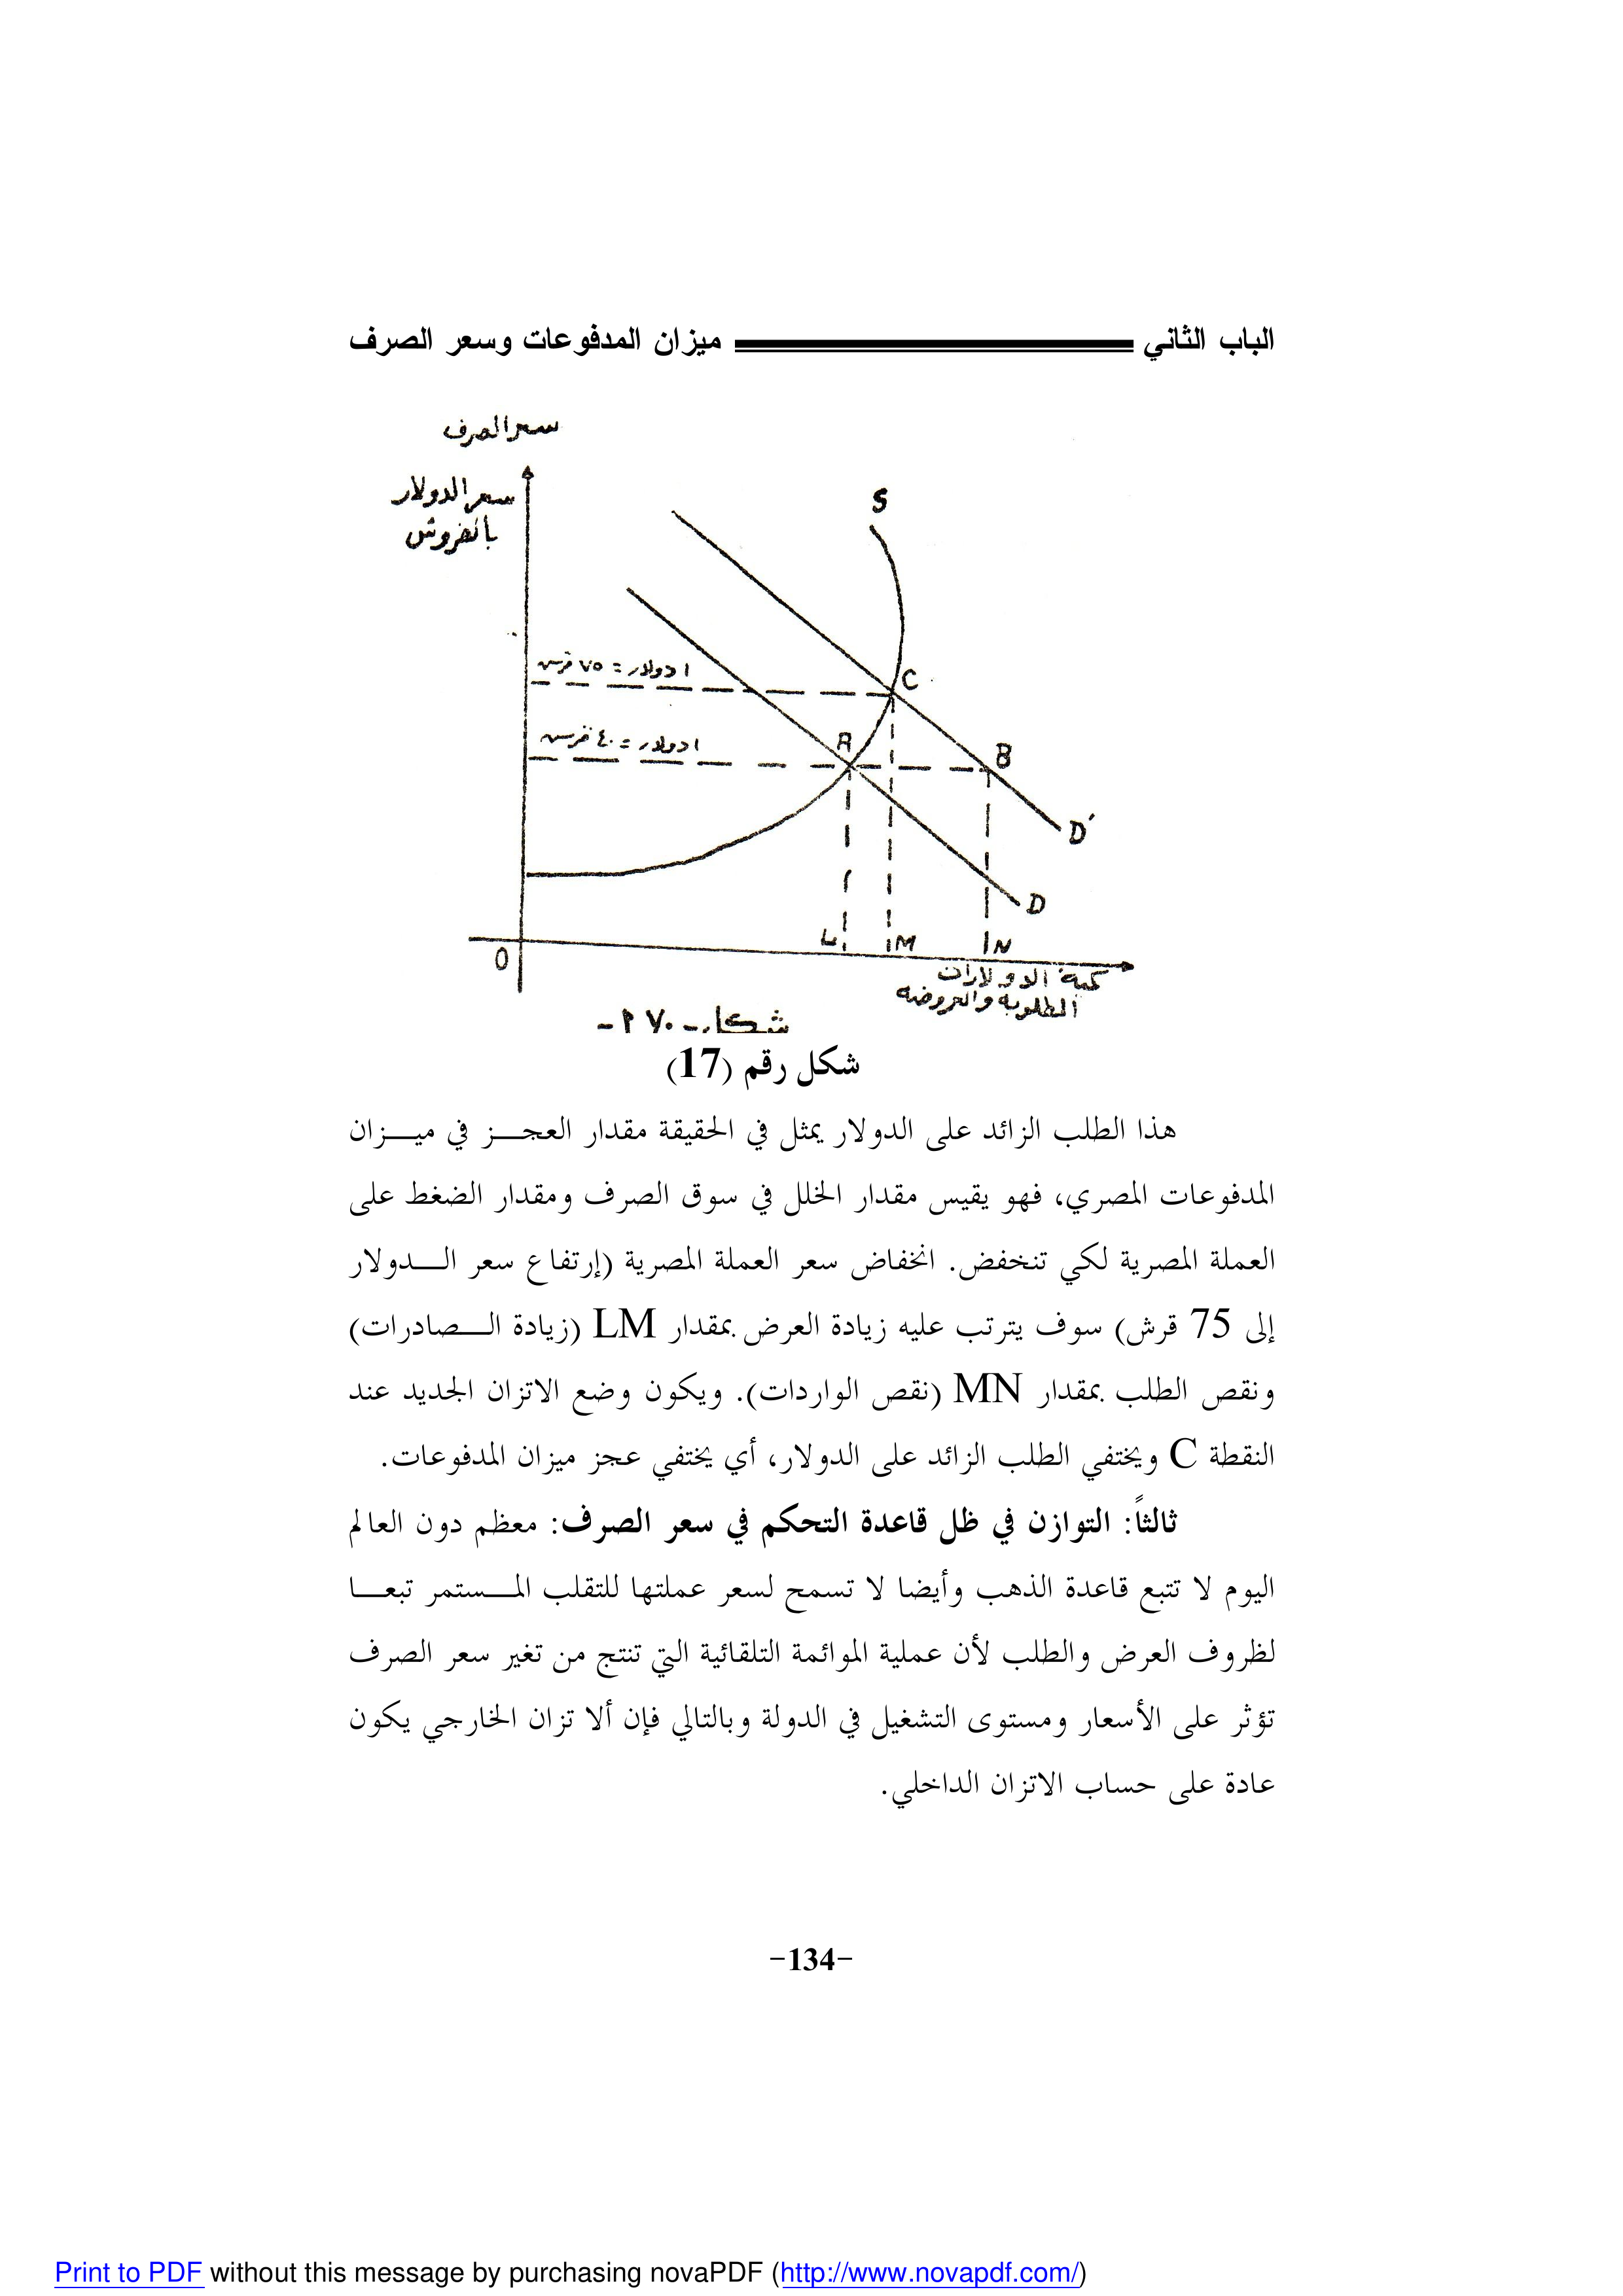 الباب الثاني ميزان المدفوعات وسعر الصرف
سعر الصرف
سعر الدولار
بالقروش
S
١ دولار = ٧٥ قرش
C
١ دولار = ٤٠ قرش
A
B
D'
D
L M N
O
كمية الدولارات
المطلوبة والمعروضة
شكل رقم (17)
هذا الطلب الزائد على الدولار يمثل في الحقيقة مقدار العجـــز في ميـــزان
المدفوعات المصري، فهو يقيس مقدار الخلل في سوق الصرف ومقدار الضغط على
العملة المصرية لكي تنخفض. انخفاض سعر العملة المصرية (إرتفاع سعر الـــدولار
إلى 75 قرش) سوف يترتب عليه زيادة العرض بمقدار LM (زيادة الـــصادرات)
ونقص الطلب بمقدار MN (نقص الواردات). ويكون وضع الاتزان الجديد عند
النقطة C ويختفي الطلب الزائد على الدولار، أي يختفي عجز ميزان المدفوعات.
ثالثاً: التوازن في ظل قاعدة التحكم في سعر الصرف: معظم دون العالم
اليوم لا تتبع قاعدة الذهب وأيضا لا تسمح لسعر عملتها للتقلب المـــستمر تبعـــا
لظروف العرض والطلب لأن عملية الموائمة التلقائية التي تنتج من تغير سعر الصرف
تؤثر على الأسعار ومستوى التشغيل في الدولة وبالتالي فإن ألا تزان الخارجي يكون
عادة على حساب الاتزان الداخلي.
-134-
Print to PDF without this message by purchasing novaPDF (http://www.novapdf.com/)